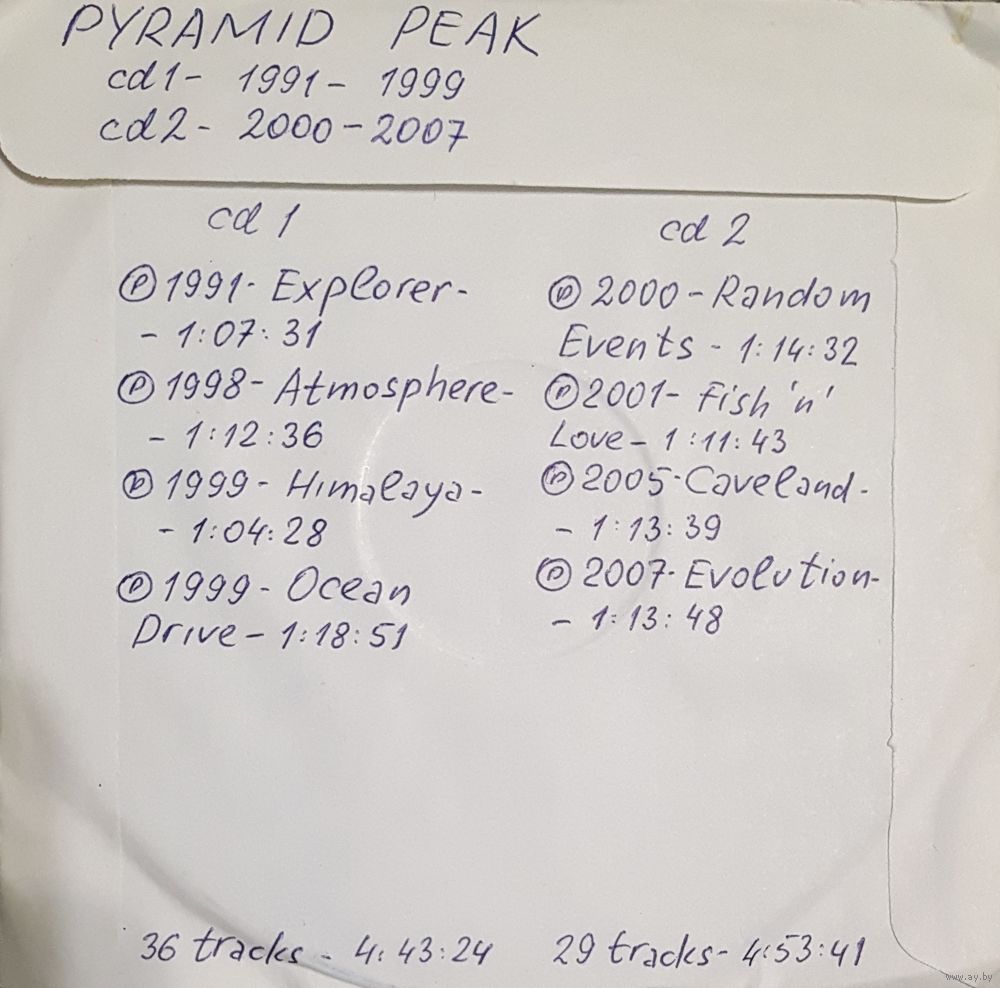 PYRAMID PEAK
cd1- 1991- 1999
cd2- 2000-2007
cd 1
Ⓟ 1991- Explorer-
- 1:07:31
Ⓟ 1998- Atmosphere-
- 1:12:36
Ⓟ 1999- Himalaya-
- 1:04:28
Ⓟ 1999- Ocean
Drive- 1:18:51
36 tracks - 4:43:24
cd 2
Ⓟ 2000-Random
Events - 1:14:32
Ⓟ 2001- Fish 'n'
Love- 1:11:43
Ⓟ 2005-Caveland-
- 1:13:39
Ⓟ 2007-Evolution-
- 1:13:48
29 tracks- 4:53:41
www.ay.by